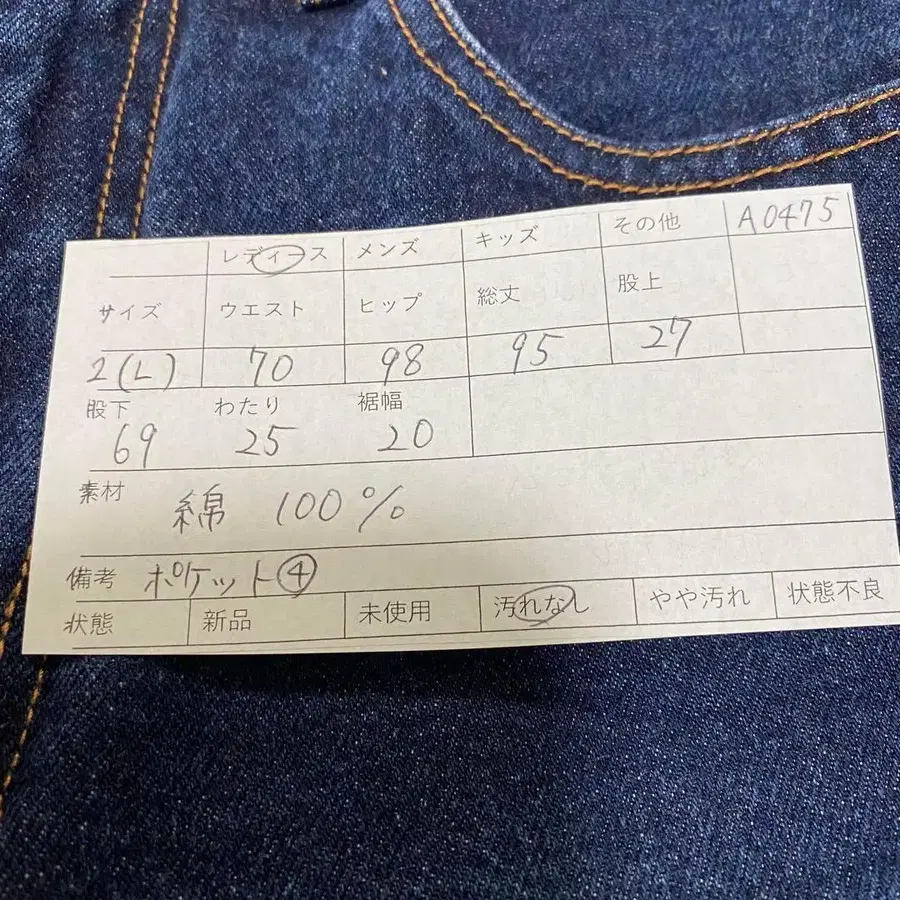 レディース メンズ キッズ その他 A0475
サイズ ウエスト ヒップ 総丈 股上
2(L) 70 98 95 27
股下 わたり 裾幅
69 25 20
素材 綿 100%
備考 ポケット④
状態 新品 未使用 汚れなし やや汚れ 状態不良